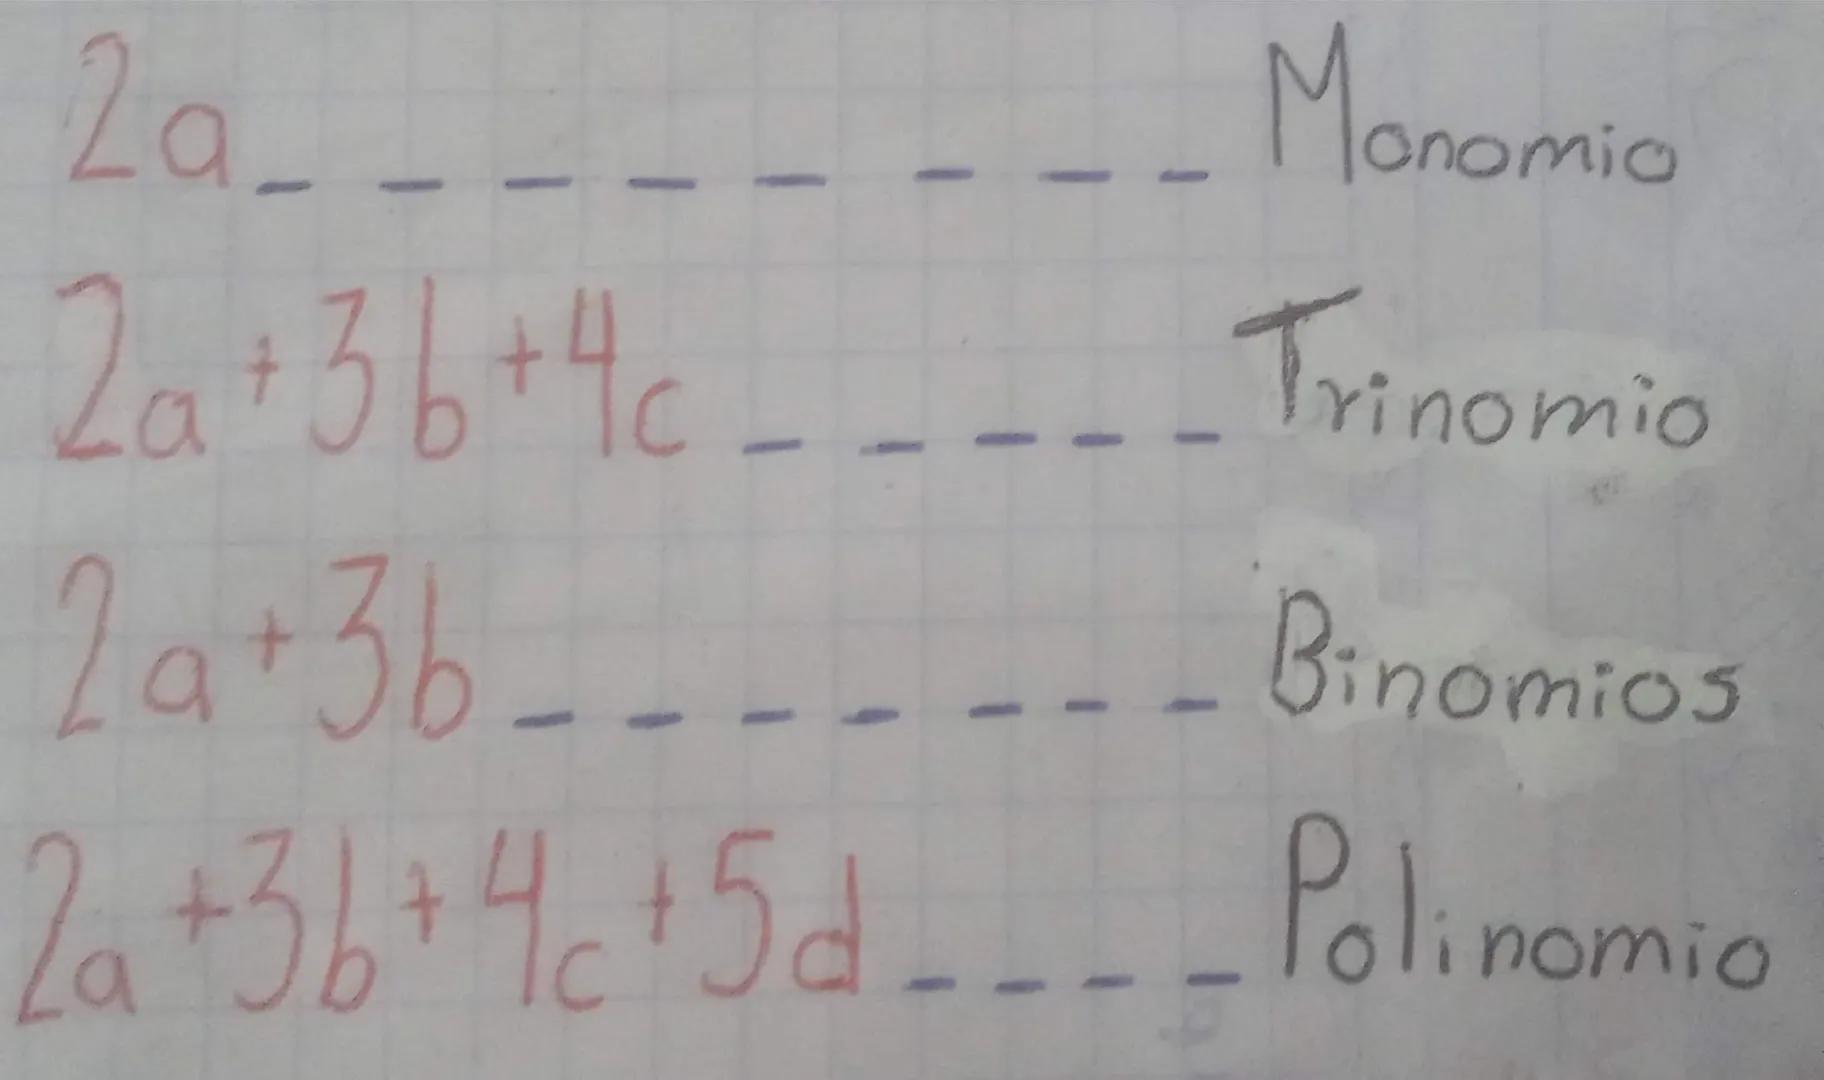 2a _ _ _ _ _ _ _ _ Monomio
2a + 3b + 4c _ _ _ _ _ Trinomio
2a + 3b _ _ _ _ _ _ _ Binomios
2a + 3b + 4c + 5d _ _ _ _ Polinomio